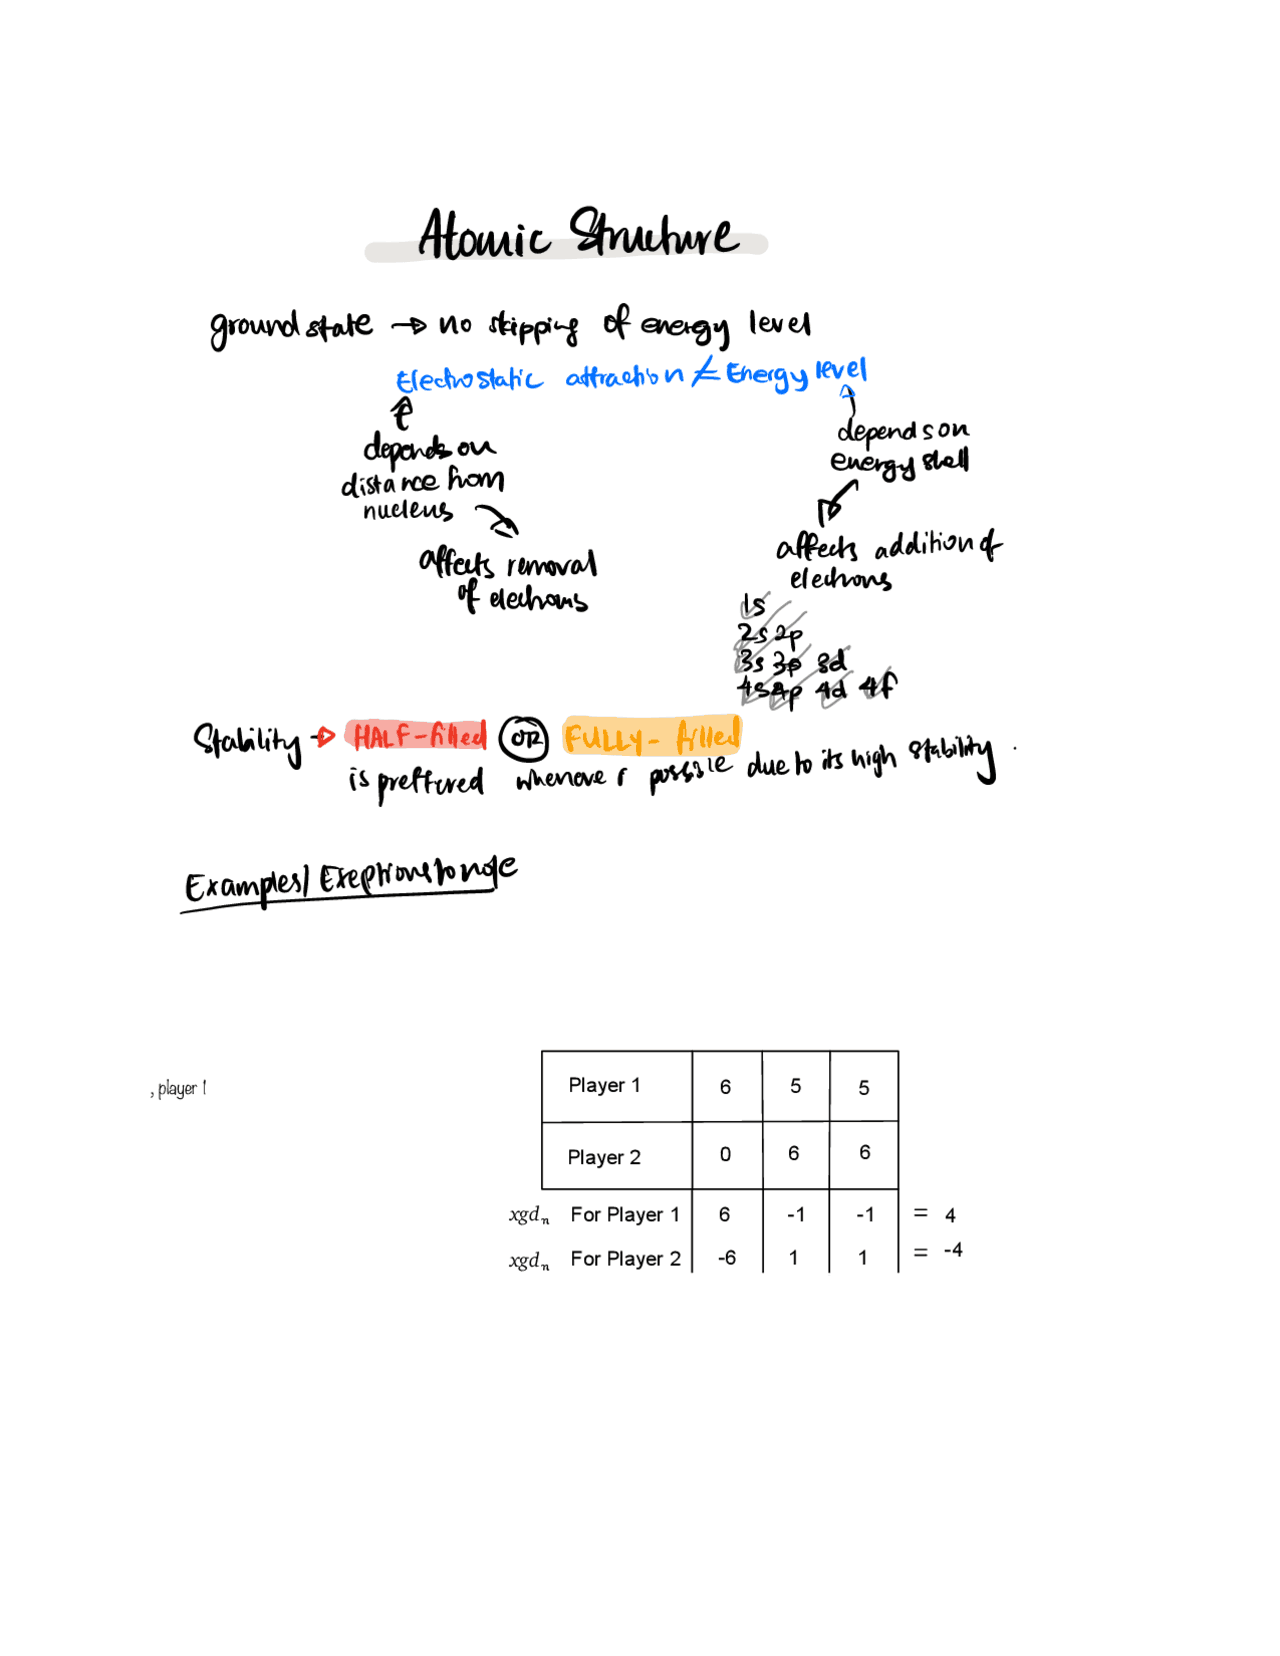 Atomic Structure
ground state → no skipping of energy level
Electrostatic attraction ≠ Energy level
depends on
distance from
nucleus
affects removal
of electrons
depends on
energy shell
affects addition of
electrons
1s
2s 2p
3s 3p 3d
4s 4p 4d 4f
Stability → HALF-filled OR FULLY-filled
is preffered whenever possible due to its high stability .
Examples/ Exeptions to note
, player 1
Player 1 6 5 5
Player 2 0 6 6
xgdₙ For Player 1 6 -1 -1 = 4
xgdₙ For Player 2 -6 1 1 = -4